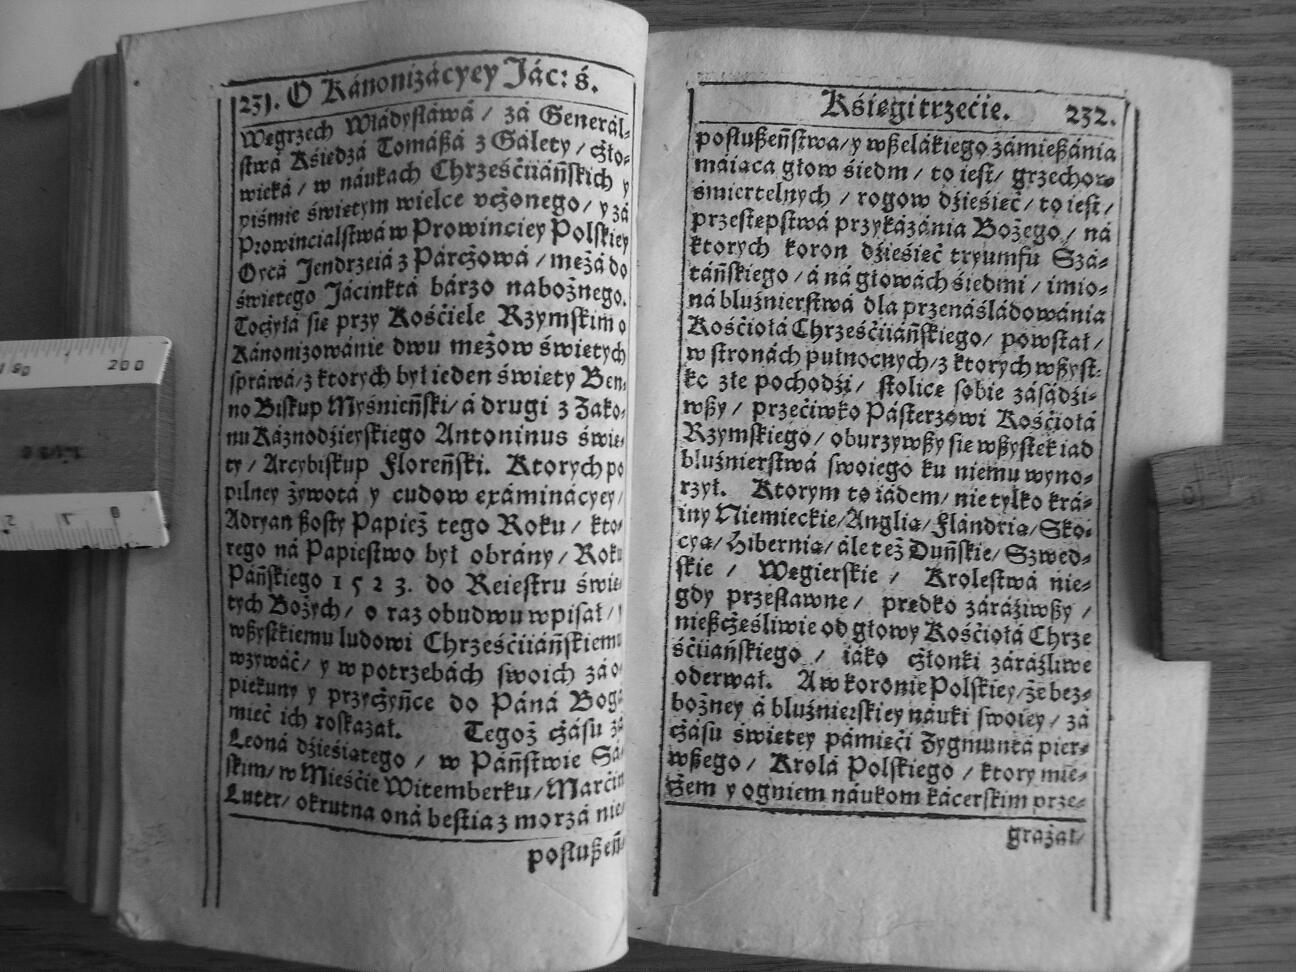 231. O Kánonizácyey Jác: ś.
Węgrzech Władysłáwá / zá Generál-
stwá Kśiędzá Tomászá z Gálety / cżło-
wieká / w náukách Chrześćiiáńskich y
piśmie świętym wielce vcżonego / y zá
Prowincialstwá w Prowinciey Polskiey
Oycá Jendrzeiá z Párcżowá / mężá do
świętego Jácinktá bárzo nabożnego.
Tocżyłá się przy Kośćiele Rzymskim o
Kánonizowánie dwu mężow świętych
spráwá / z ktorych był ieden święty Ben-
no Biskup Myśnieński / á drugi z Zako-
nu Káznodźieyskiego Antoninus świę-
ty / Arcybiskup Floreński. Ktorych po
pilney żywotá y cudow exáminácyey /
Adryan szosty Papież tego Roku / kto-
rego ná Papiestwo był obrány / Roku
Páńskiego 1523. do Reiestru świę-
tych Bożych / o raz obudwu wpisał /
wszystkiemu ludowi Chrześćiiáńskiemu
wzywáć / y w potrzebách swoich zá o-
piekuny y przycżyńce do Páná Bogá
mieć ich roskazał. Tegoż cżásu zá
Leoná dźieśiątego / w Páństwie Sá-
skim / w Mieśćie Witemberku / Marćin
Luter / okrutna oná bestia z morzá nie-
posłuszeń-
Kśięgi trzećie. 232.
posłuszeństwa / y wszelákiego zámieszánia
máiąca głow śiedm / to iest / grzechow
śmiertelnych / rogow dźieśięć / to iest /
przestępstwá przykázánia Bożego / ná
ktorych koron dźieśięć tryumfu Szá-
táńskiego / á ná głowách śiedmi / imio-
ná bluźnierstwá dla przenáśládowánia
Kośćiołá Chrześćiiáńskiego / powstał /
w stronách pułnocnych / z ktorych wszyst-
ko złe pochodźi / stolicę sobie zásádźi-
wszy / przećiwko Pásterzowi Kośćiołá
Rzymskiego / oburzywszy się wszystek iad
bluźnierstwá swoiego ku niemu wyno-
rzył. Ktorym to iádem / nie tylko krá-
iny Niemieckie / Anglią / Flándrią / Sko-
cyą / Hibernią / ále też Duńskie / Szwed-
skie / Węgierskie / Krolestwá nie-
gdy przesławne / prędko záráźiwszy /
nieszcżęśliwie od głowy Kośćiołá Chrze
śćiiáńskiego / iáko cżłonki záráźliwe
oderwał. A w koronie Polskiey / że bez-
bożney á bluźnierskiey náuki swoiey / zá
cżásu świętey pámięći Zygmuntá pier-
wszego / Krolá Polskiego / ktory mie-
cżem y ogniem náukom kácerskim prze-
grażał /